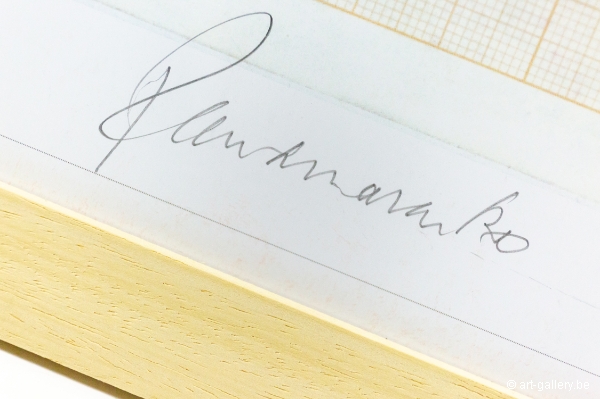 Panamarenko
© art-gallery.be